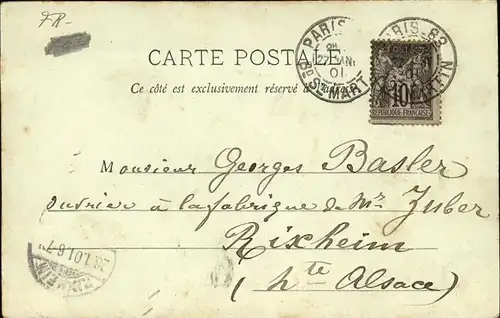 FR-
CARTE POSTALE
Ce côté est exclusivement réservé à
PARIS
8H
27 JAN
01
Bd ST MART
PARIS-83
01
POSTES
10
REPUBLIQUE FRANÇAISE
Monsieur Georges Basler
ouvrier à la fabrique de Mr Zuber
Rixheim
(hte Alsace)
28.1.01.6-7N